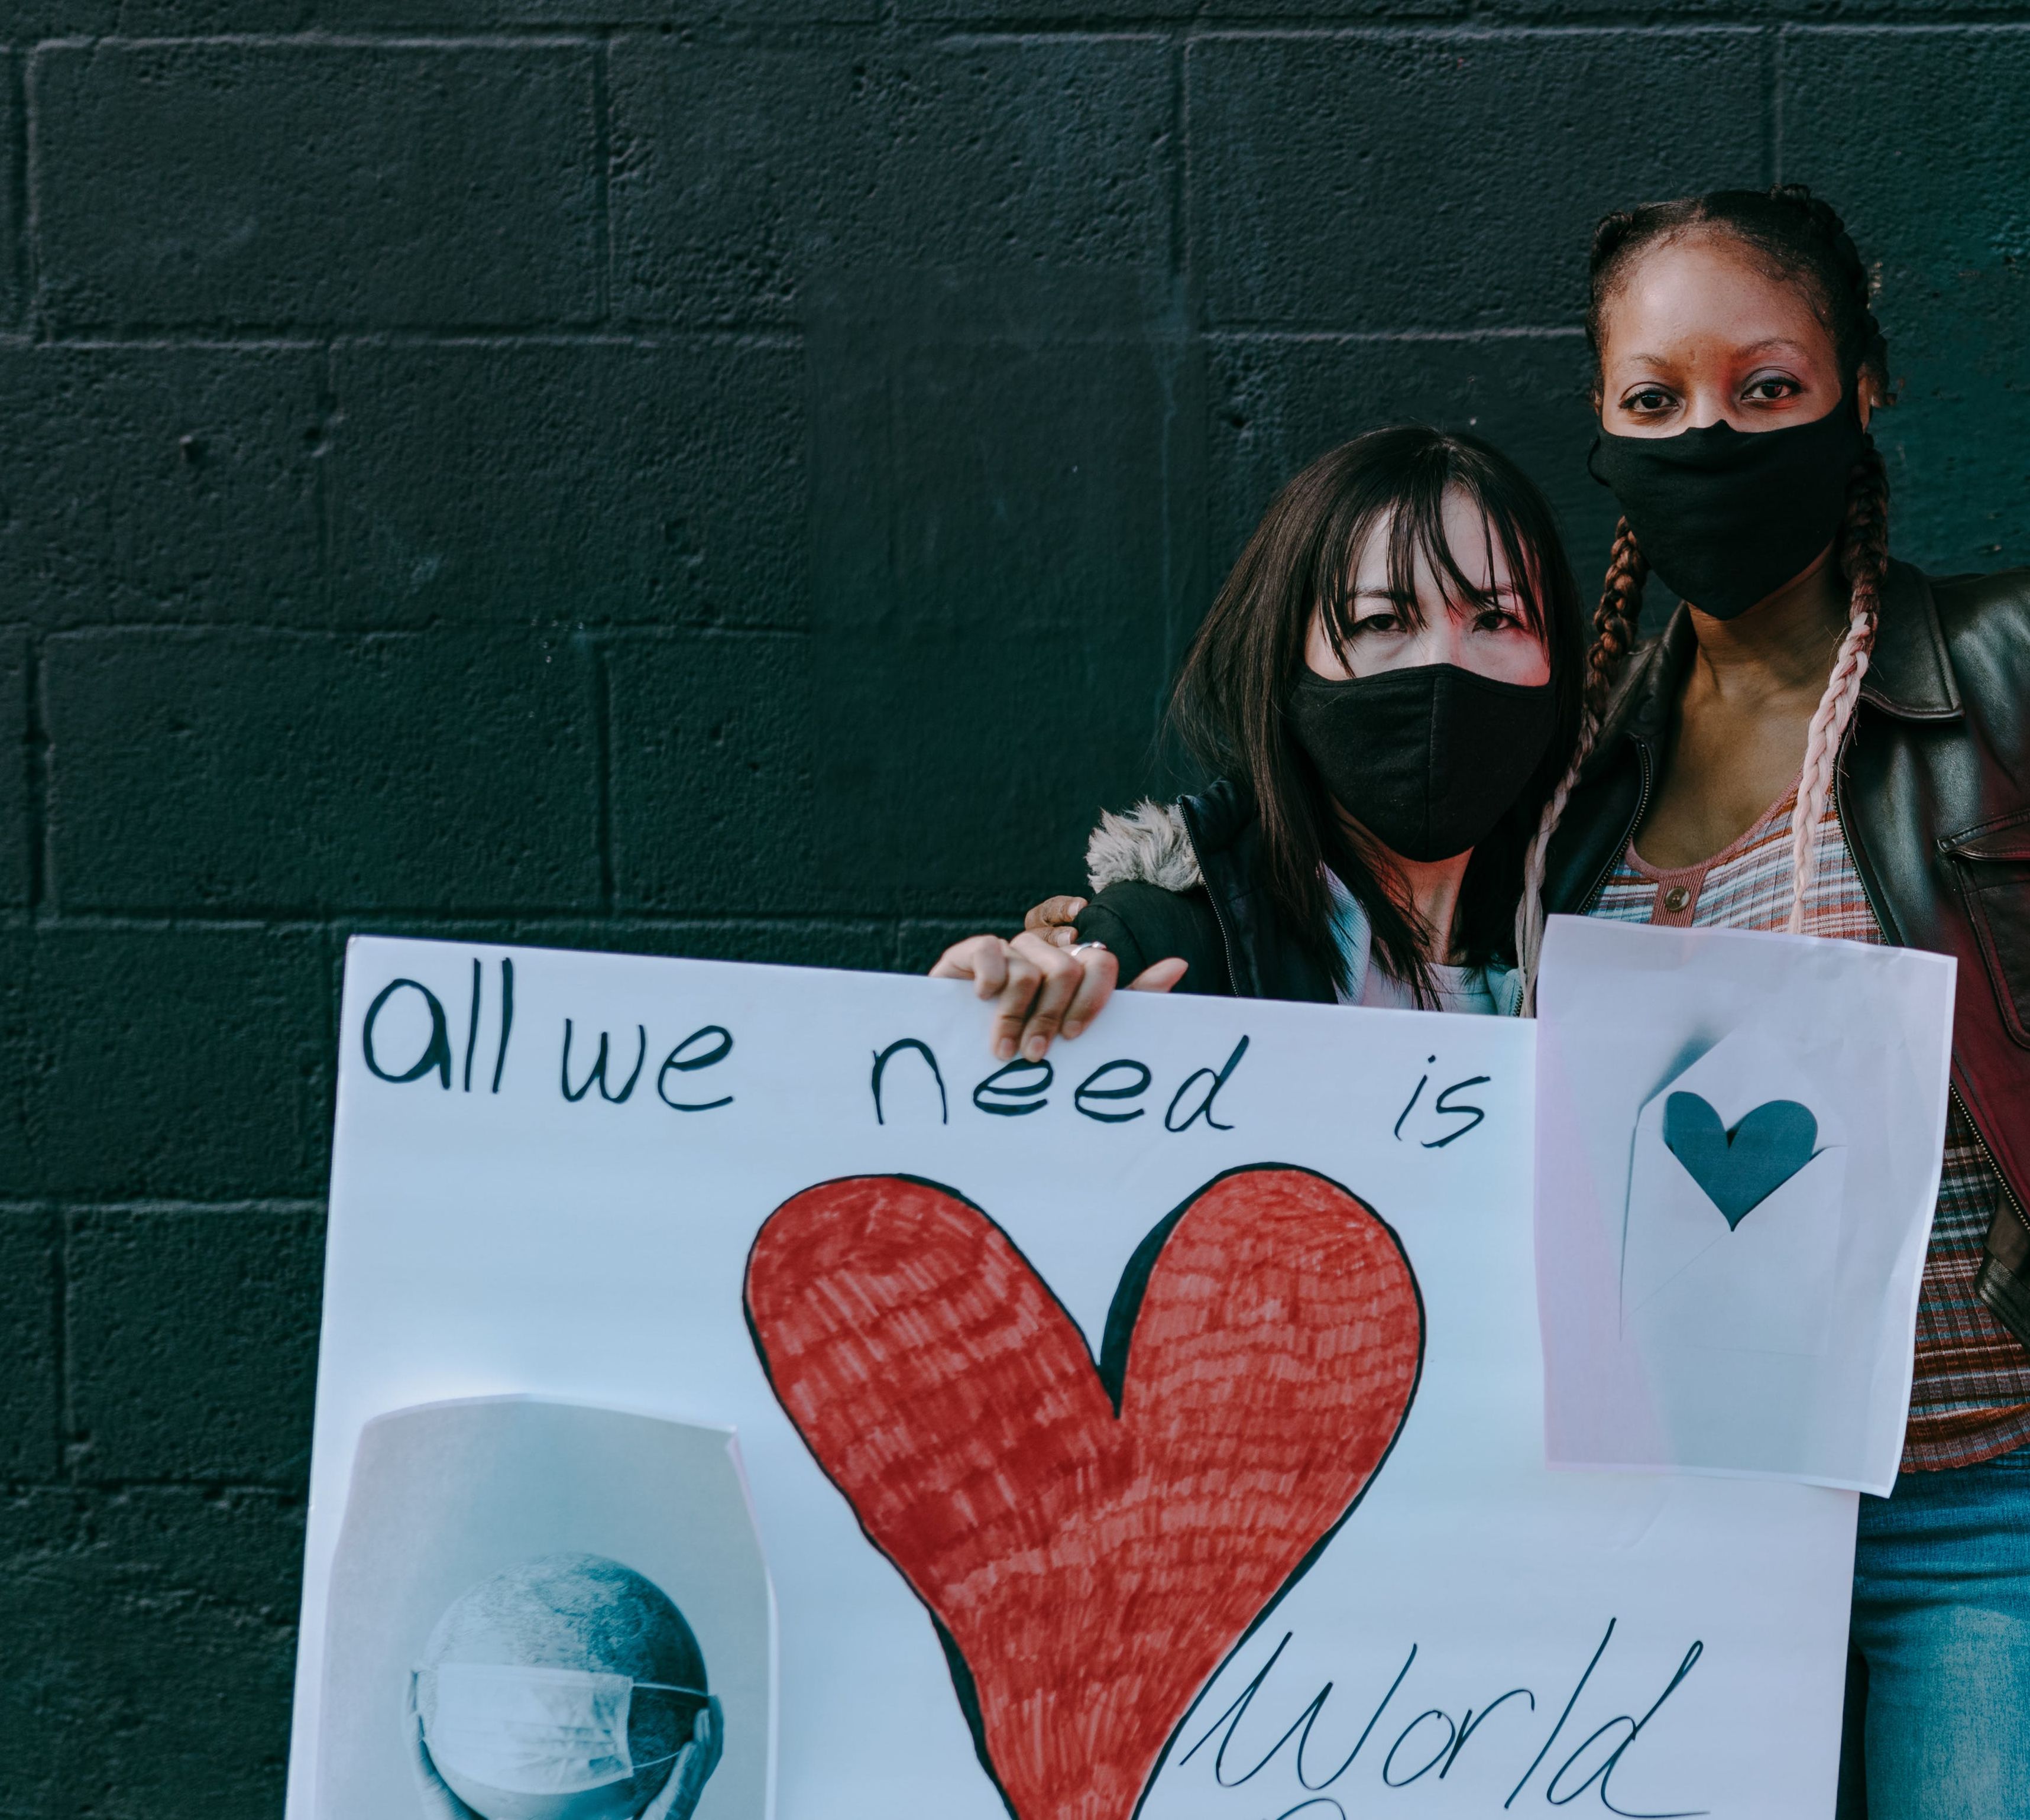 all we need is
World